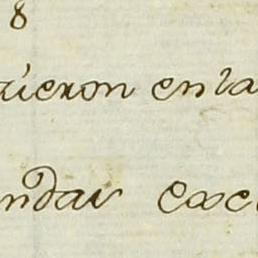 8
uieron en la
ndar exc